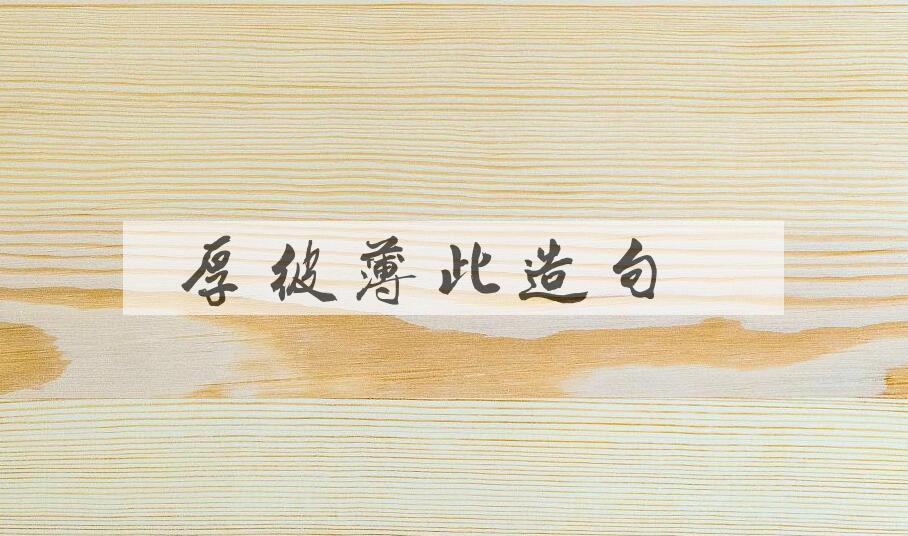 厚彼薄此造句